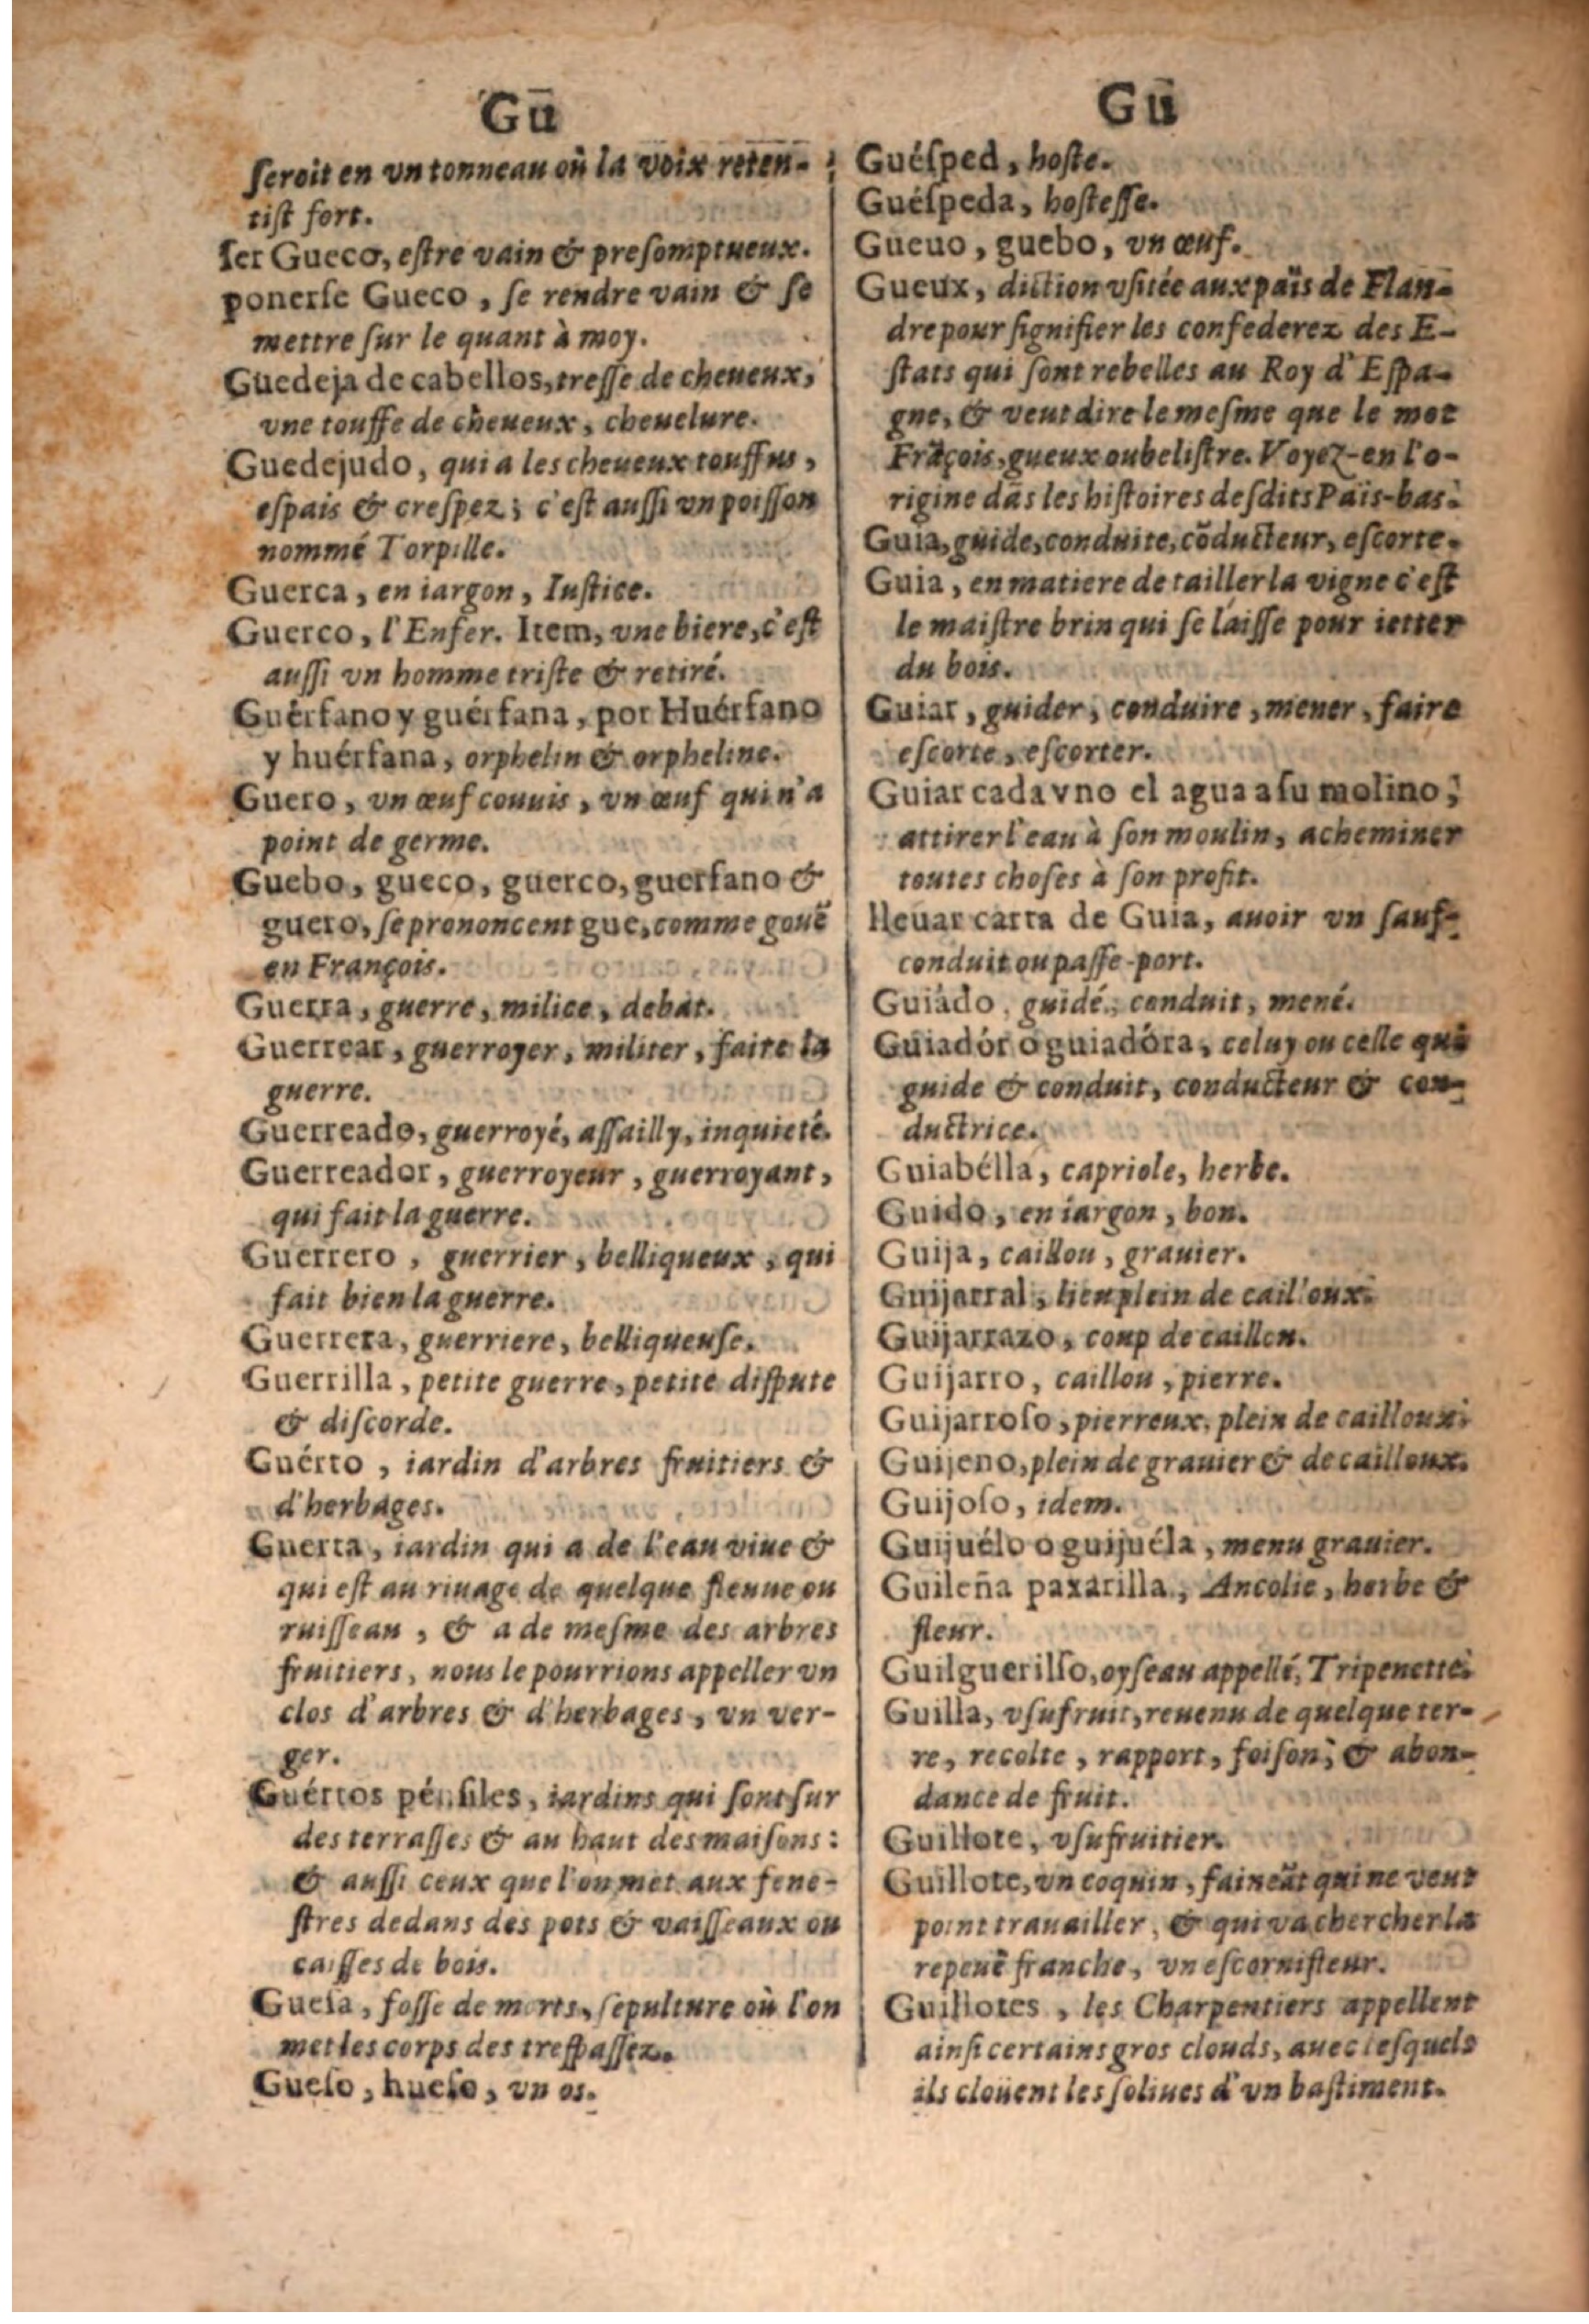 Gū
ſeroit en vn tonneau où la voix reten-
tiſt fort.
ſer Gueco, eſtre vain & preſomptueux.
ponerſe Gueco, ſe rendre vain & ſe
mettre ſur le quant à moy.
Guedeja de cabellos, treſſe de cheueux,
vne touffe de cheueux, cheuelure.
Guedejudo, qui a les cheueux touffus,
eſpais & creſpez; c'eſt auſſi vn poiſſon
nommé Torpille.
Guerca, en iargon, Iuſtice.
Guerco, l'Enfer. Item, vne biere, c'eſt
auſſi vn homme triſte & retiré.
Guérfano y guérfana, por Huérfano
y huérfana, orphelin & orpheline.
Guero, vn œuf couuis, vn œuf qui n'a
point de germe.
Guebo, gueco, guerco, guerfano &
guero, ſe prononcent gue, comme gouë
en François.
Guerra, guerre, milice, debat.
Guerrear, guerroyer, militer, faire la
guerre.
Guerreado, guerroyé, aſſailly, inquieté.
Guerreador, guerroyeur, guerroyant,
qui fait la guerre.
Guerrero, guerrier, belliqueux, qui
fait bien la guerre.
Guerrera, guerriere, belliqueuſe.
Guerrilla, petite guerre, petite diſpute
& diſcorde.
Guérto, iardin d'arbres fruitiers &
d'herbages.
Guerta, iardin qui a de l'eau viue &
qui eſt au riuage de quelque fleuue ou
ruiſſeau, & a de meſme des arbres
fruitiers, nous le pourrions appeller vn
clos d'arbres & d'herbages, vn ver-
ger.
Guértos pénſiles, iardins qui ſont ſur
des terraſſes & au haut des maiſons:
& auſſi ceux que l'on met aux fene-
ſtres dedans des pots & vaiſſeaux ou
caiſſes de bois.
Gueſa, foſſe de morts, ſepulture où l'on
met les corps des treſpaſſez.
Gueſo, hueſo, vn os.
Gū
Guéſped, hoſte.
Guéſpeda, hoſteſſe.
Gueuo, guebo, vn œuf.
Gueux, diction vſitée aux païs de Flan-
dre pour ſignifier les confederez des E-
ſtats qui ſont rebelles au Roy d'Eſpa-
gne, & veut dire le meſme que le mot
Frāçois, gueux ou beliſtre. Voyez-en l'o-
rigine dās les hiſtoires deſdits Païs-bas.
Guia, guide, conduite, cōducteur, eſcorte.
Guia, en matiere de tailler la vigne c'eſt
le maiſtre brin qui ſe laiſſe pour ietter
du bois.
Guiar, guider, conduire, mener, faire
eſcorte, eſcorter.
Guiar cada vno el agua a ſu molino,
attirer l'eau à ſon moulin, acheminer
toutes choſes à ſon profit.
lleuar carta de Guia, auoir vn ſauf-
conduit ou paſſe-port.
Guiádo, guidé, conduit, mené.
Guiadór o guiadóra, celuy ou celle qui
guide & conduit, conducteur & con-
ductrice.
Guiabélla, capriole, herbe.
Guido, en iargon, bon.
Guija, caillou, grauier.
Guijarral, lieu plein de cailloux.
Guijarrazo, coup de caillou.
Guijarro, caillou, pierre.
Guijarroſo, pierreux, plein de cailloux.
Guijeno, plein de grauier & de cailloux.
Guijoſo, idem.
Guijuélo o guijuéla, menu grauier.
Guileña paxarilla, Ancolie, herbe &
fleur.
Guilguerillo, oyſeau appellé, Tripenette.
Guilla, vſufruit, reuenu de quelque ter-
re, recolte, rapport, foiſon, & abon-
dance de fruit.
Guillote, vſufruitier.
Guillote, vn coquin, faineāt qui ne veut
point trauailler, & qui va chercher la
repeuë franche, vn eſcornifleur.
Guillotes, les Charpentiers appellent
ainſi certains gros clouds, auec leſquels
ils clouënt les ſoliues d'vn baſtiment.